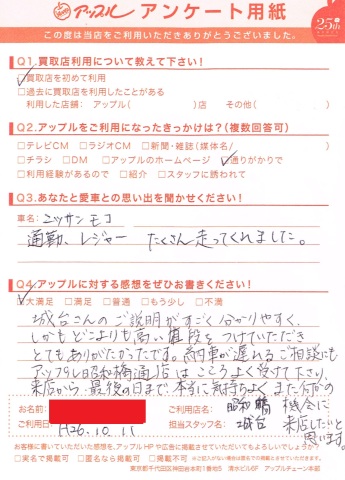 アップル アンケート用紙
25th
この度は当店をご利用いただきありがとうございました。
Q1.買取店利用について教えて下さい!
☑買取店を初めて利用
□過去に買取店を利用したことがある
利用した店舗: アップル( )店 その他( )
Q2.アップルをご利用になったきっかけは?(複数回答可)
□テレビCM □ラジオCM □新聞・雑誌(媒体名/ )
□チラシ □DM □アップルのホームページ ☑通りがかりで
□利用経験があるので □紹介 □スタッフに誘われて
Q3.あなたと愛車との思い出を聞かせください!
車名: ニッサン モコ
通勤、レジャー たくさん走ってくれました。
Q4.アップルに対する感想をぜひお書きください!
☑大満足 □満足 □普通 □もう少し □不満
城台さんのご説明がすごく分かりやすく、
しかもどこよりも高い値段をつけていただき
とてもありがたかったです。納車が遅れるご相談にも
アップル昭和橋通店はこころよく受けて下さり、
来店から、最後の日まで、本当に気持ちよく また何かの
機会に
来店したいと
思います。
お名前:
ご利用店名: 昭和橋
ご利用日 H26.10.11
担当スタッフ名: 城台
お客様に書いていただいた感想を、アップルHPや広告に掲載させていただいてもよろしいでしょうか?
□実名で掲載可 □匿名なら掲載可 □掲載不可
東京都千代田区神田岩本町1番地5 清水ビル6F アップルチェーン本部